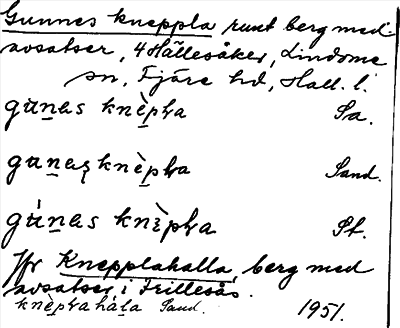 Gunnes kneppla runt berg med
avsatser, 4 Hällesåker, Lindome
sn, Fjäre hd, Hall. l.
gùnas knèpɫa Sa.
gunas knèpɫa Sand.
gúnas knèpɫa St.
Jfr Knepplahalla, berg med
avsatser i Frillesås.
knèpɫahàla Sand. 1951.